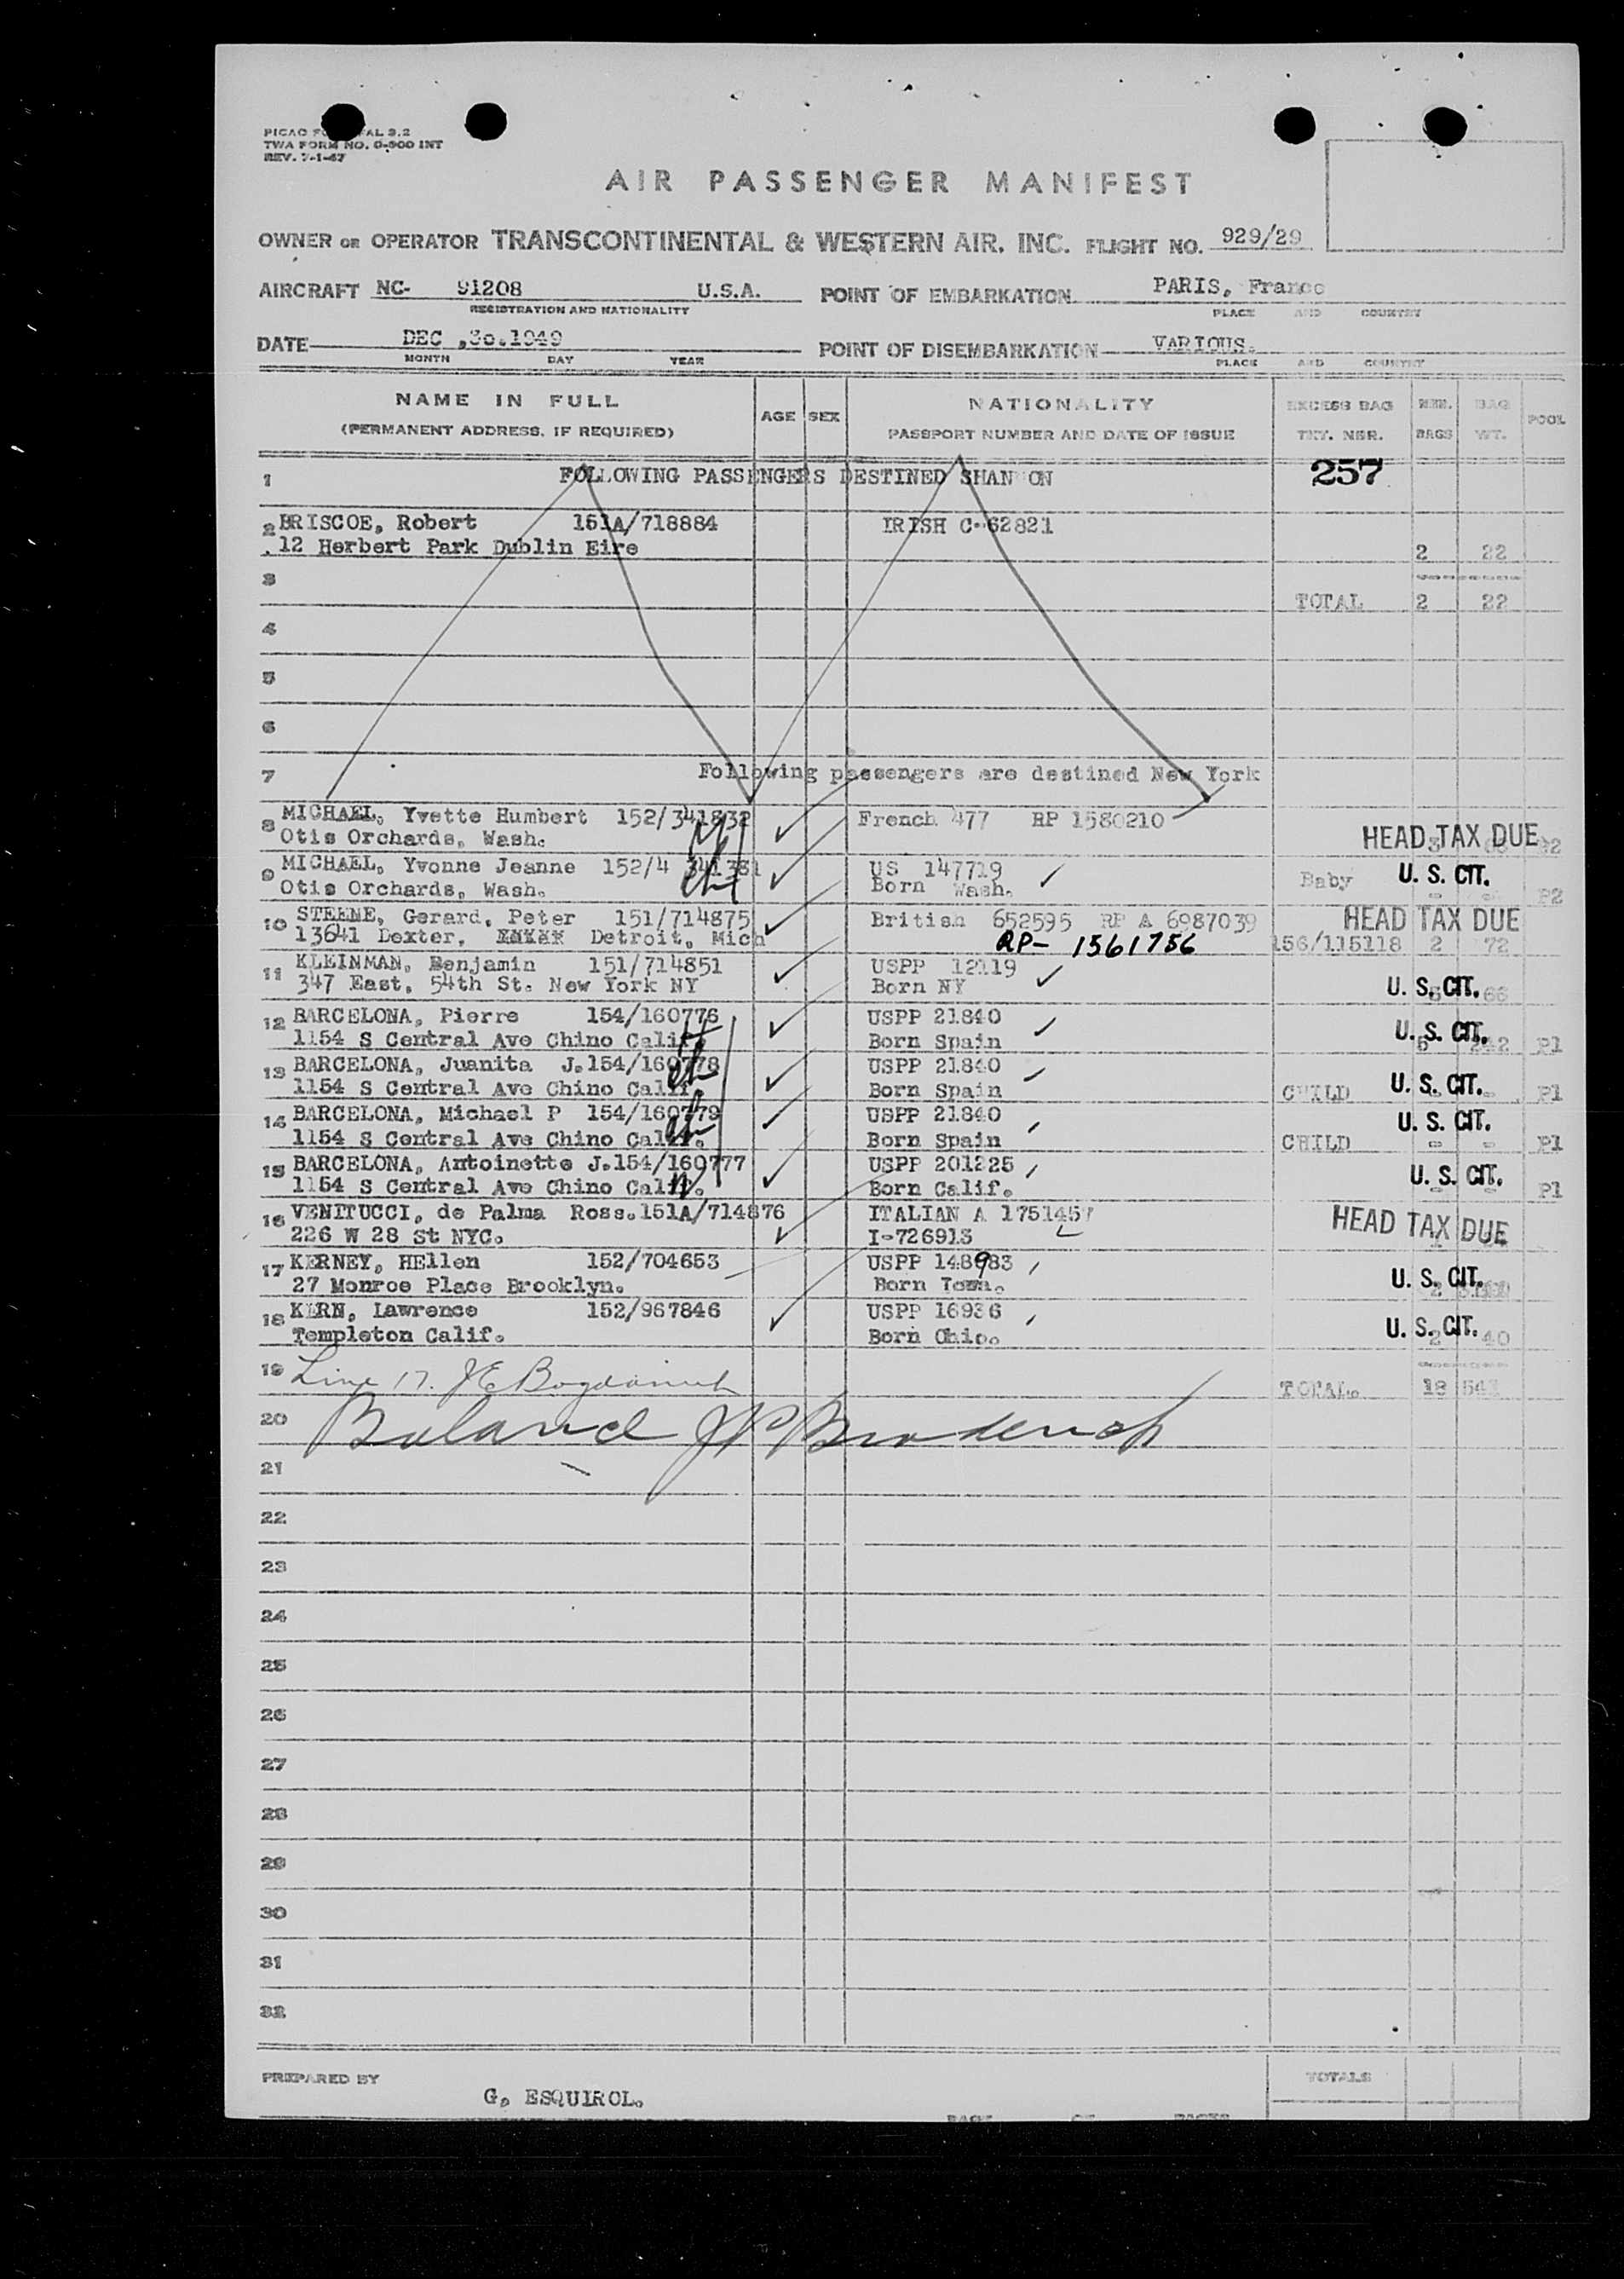 TWA FORM NO. 0-900 INT
REV. 7-1-47
AIR PASSENGER MANIFEST
OWNER OR OPERATOR TRANSCONTINENTAL & WESTERN AIR, INC. FLIGHT NO. 929/29
AIRCRAFT NC- 91208 U.S.A. POINT OF EMBARKATION PARIS, France
REGISTRATION AND NATIONALITY PLACE AND COUNTRY
DATE DEC ,3o.1949 POINT OF DISEMBARKATION VARIOUS.
MONTH DAY YEAR PLACE AND COUNTRY
NAME IN FULL AGE SEX NATIONALITY EXCESS BAG NBR. BAG POOL
(PERMANENT ADDRESS, IF REQUIRED) PASSPORT NUMBER AND DATE OF ISSUE TKT. NBR. BAGS WT.
1 FOLLOWING PASSENGERS DESTINED SHAN ON 257
2 BRISCOE, Robert 151A/718884 IRISH C-62821
12 Herbert Park Dublin Eire 2 22
3
TOTAL 2 22
4
5
6
7 Following passengers are destined New York
8 MICHAEL, Yvette Humbert 152/341832 French 477 RP 1580210
Otis Orchards, Wash. HEAD TAX DUE
9 MICHAEL, Yvonne Jeanne 152/4 341331 US 147719
Otis Orchards, Wash. Born Wash. Baby U. S. CIT. P2
10 STEENE, Gerard, Peter 151/714875 British 652595 RP A 6987039 HEAD TAX DUE
13641 Dexter, Detroit, Mich RP- 1561756 156/115118 2 72
11 KLEINMAN, Benjamin 151/714851 USPP 12119
347 East, 54th St. New York NY Born NY U. S. CIT. 66
12 BARCELONA, Pierre 154/160776 USPP 21840
1154 S Central Ave Chino Calif. Born Spain U. S. CIT. 242 P1
13 BARCELONA, Juanita J.154/160778 USPP 21840
1154 S Central Ave Chino Calif. Born Spain CHILD U. S. CIT. P1
14 BARCELONA, Michael P 154/160779 USPP 21840 U. S. CIT.
1154 S Central Ave Chino Calif. Born Spain CHILD - - P1
15 BARCELONA, Antoinette J.154/160777 USPP 201225
1154 S Central Ave Chino Calif. Born Calif. U. S. CIT. P1
16 VENITUCCI, de Palma Ross.151A/714876 ITALIAN A 1751457
226 W 28 St NYC. I-726913 HEAD TAX DUE
17 KERNEY, HEllen 152/704653 USPP 148983
27 Monroe Place Brooklyn. Born U. S. CIT.
18 KERN, Lawrence 152/967846 USPP 16936
Templeton Calif. Born Ohio. U. S. CIT. 2 40
19 Line 17.
TOTAL. 18
20 Balance
21
22
23
24
25
26
27
28
29
30
31
32
PREPARED BY TOTALS
G. ESQUIROL.